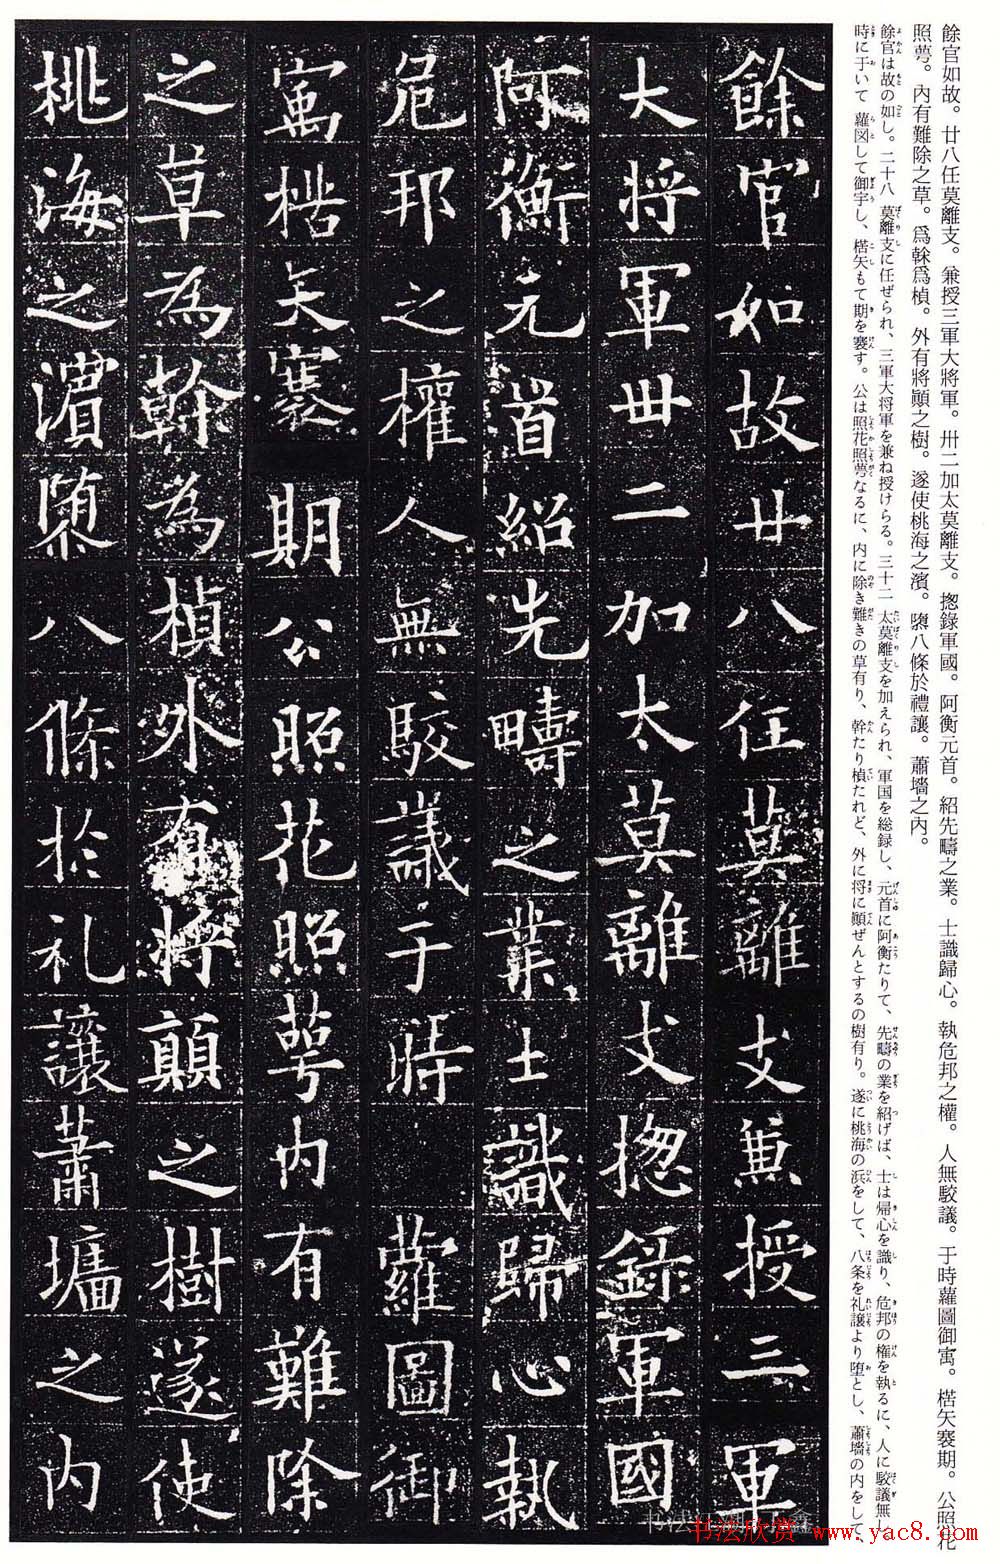 餘官如故。廿八任莫離支。兼授三軍大將軍。卅二加太莫離支。揔錄軍國。阿衡元首。紹先疇之業。士識歸心。執危邦之權。人無駮議。于時蘿圖御㝢。楛矢褰期。公照花
照萼。內有難除之草。爲榦爲楨。外有將顚之樹。遂使桃海之濱。隳八條於禮讓。蕭墻之內。
餘官は故の如し。二十八 莫離支に任ぜられ、三軍大将軍を兼ね授けらる。三十二 太莫離支を加えられ、軍国を総録し、元首に阿衡たりて、先疇の業を紹げば、士は帰心を識り、危邦の権を執るに、人に駮議無し
時に于いて 蘿図して御宇し、楛矢もて期を褰す。公は照花照萼なるに、内に除き難きの草有り、幹たり楨たれど、外に将に顚ぜんとするの樹有り。遂に桃海の浜をして、八条を礼譲より堕とし、蕭墻の内をして
餘官如故廿八任莫離支兼授三軍
大将軍卌二加太莫離支揔錄軍國
阿衡元首紹先疇之業士識歸心執
危邦之權人無駮議于時蘿圖御
㝢楛矢褰期公照花照萼内有難除
之草為幹為楨外有将顛之樹遂使
桃海之濱隳八條於礼讓蕭墻之内
书法欣赏 www.yac8.com